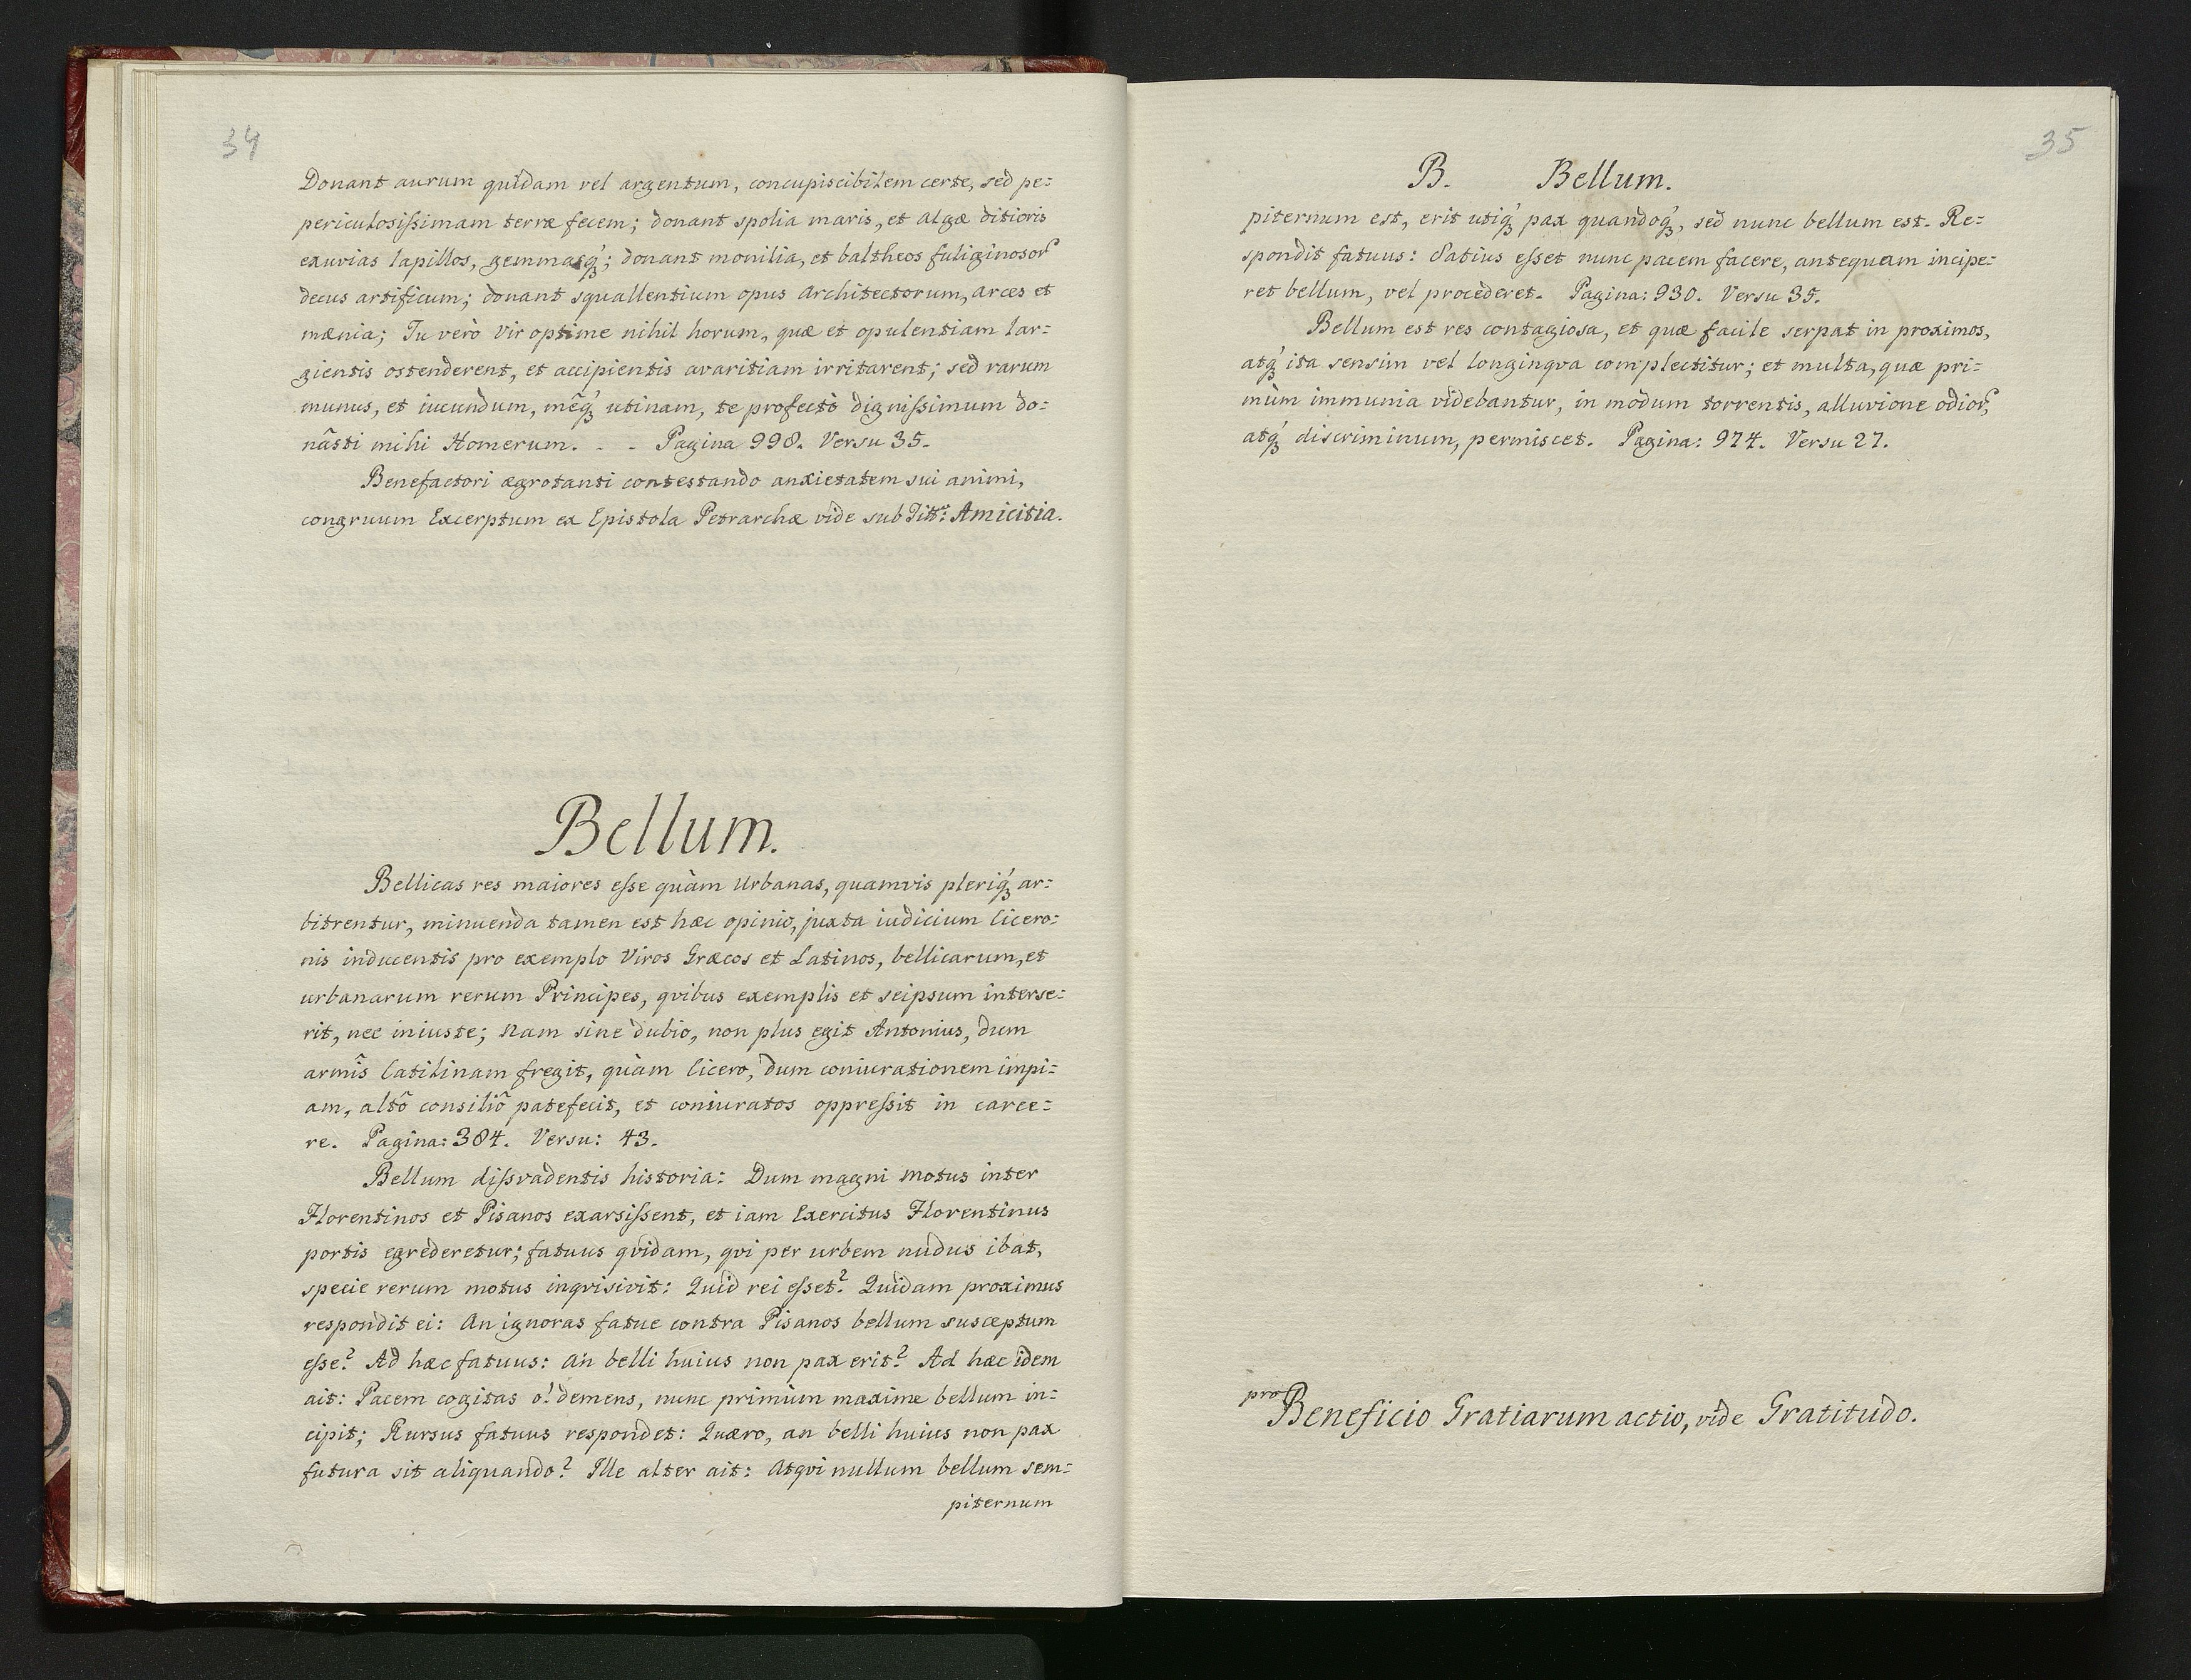 34
Donant aurum quidam vel argentum, concupiscibilem certe, sed pe=
periculosissimam terræ fecem; donant spolia maris, et algæ ditioris
exuvias lapillos, gemmasq́ꝫ; donant monilia, et baltheos fuliginosoꝝ
decus artificum; donant squallentium opus Architectorum, arces et
mænia; Tu verò vir optime nihil horum, quæ et opulentiam lar=
gientis ostenderent, et accipientis avaritiam irritarent; sed rarum
munus, et iucundum, mẽq́ꝫ utinam, te profectò dignissimum do=
nâsti mihi Homerum. - - Pagina 998. Versu 35.
Benefactori ægrotanti contestando anxietatem sui animi,
congruum Excerptum ex Epistola Petrarchæ vide sub Titt: Amicitia.
Bellum.
Bellicas res maiores esse quàm Urbanas, quamvis pleriq́ꝫ ar=
bitrentur, minuenda tamen est hæc opinio, juxta iudicium Cicero=
nis inducentis pro exemplo Viros Græcos et Latinos, bellicarum, et
urbanarum rerum Principes, qvibus exemplis et seipsum interse=
rit, nec iniuste; nam sine dubio, non plus egit Antonius, dum
armîs Catilinam fregit, quàm Cicero, dum coniurationem impi=
am, altô consiliô patefecit, et coniuratos oppressit in carce=
re. Pagina: 384. Versu: 43.
Bellum dissvadentis historia: Dum magni motus inter
Florentinos et Pisanos exarsissent, et iam Exercitus Florentinus
portis egrederetur; fatuus qvidam, qvi per urbem nudus ibat,
specie rerum motus inqvisivit: Quid rei esset? Quidam proximus
respondit ei: An ignoras fatue contra Pisanos bellum susceptum
esse? Ad hæc fatuus: An belli huius non pax erit? Ad hæc idem
ait: Pacem cogitas o! demens, nunc primùm maxime bellum in=
cipit; Rursus fatuus respondet: Quæro, an belli huius non pax
futura sit aliquando? Ille alter ait: Atqvi nullum bellum sem=
piternum
35
B. Bellum.
piternum est, erit utiq́ꝫ pax quandoq́ꝫ, sed nunc bellum est. Re=
spondit fatuus: Satius esset nunc pacem facere, antequam incipe=
ret bellum, vel procederet. Pagina: 930. Versu 35.
Bellum est res contagiosa, et quæ facile serpat in proximos,
atq́ꝫ ita sensim vel longinqva complectitur; et multa, quæ pri=
mùm immunia videbantur, in modum torrentis, alluvione odioꝝ,
atq́ꝫ discriminum, permiscet. Pagina: 974. Versu 27.
pro Beneficio Gratiarum actio, vide Gratitudo.